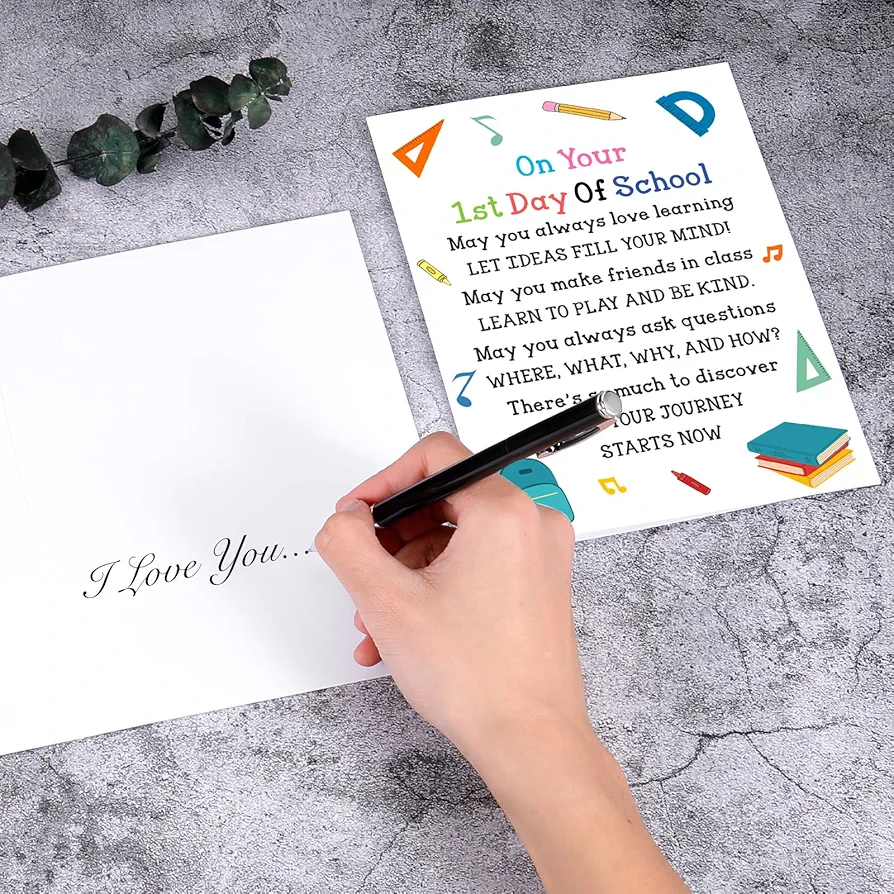 On Your
1st Day Of School
May you always love learning
LET IDEAS FILL YOUR MIND!
May you make friends in class
LEARN TO PLAY AND BE KIND.
May you always ask questions
WHERE, WHAT, WHY, AND HOW?
There's so much to discover
YOUR JOURNEY
STARTS NOW
I Love You...